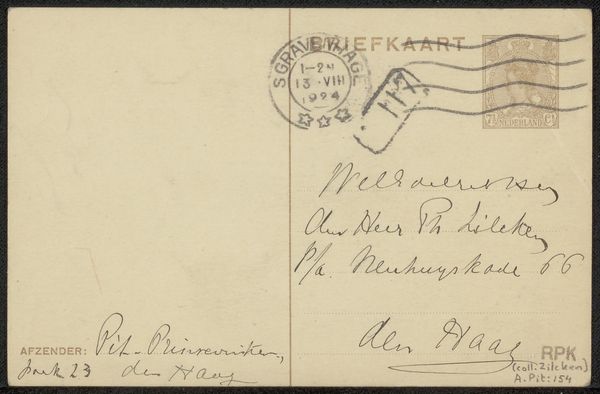 BRIEFKAART
'SGRAVENHAGE
1-2N
13.VIII
1924
7½ Ct
NEDERLAND
den Heer Ph Zilcken
p/a. Nenhuyskade 66
den Haag
AFZENDER: Pit-Prinsevinken,
den Haag
RPK
(coll. Zilcken)
A. Pit: 154